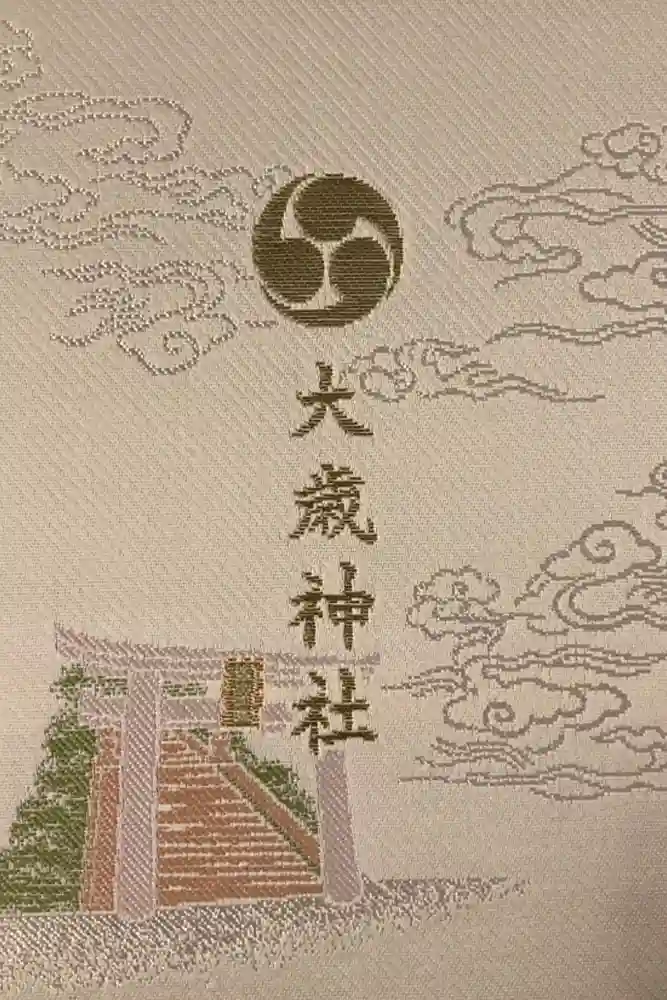 大歳神社